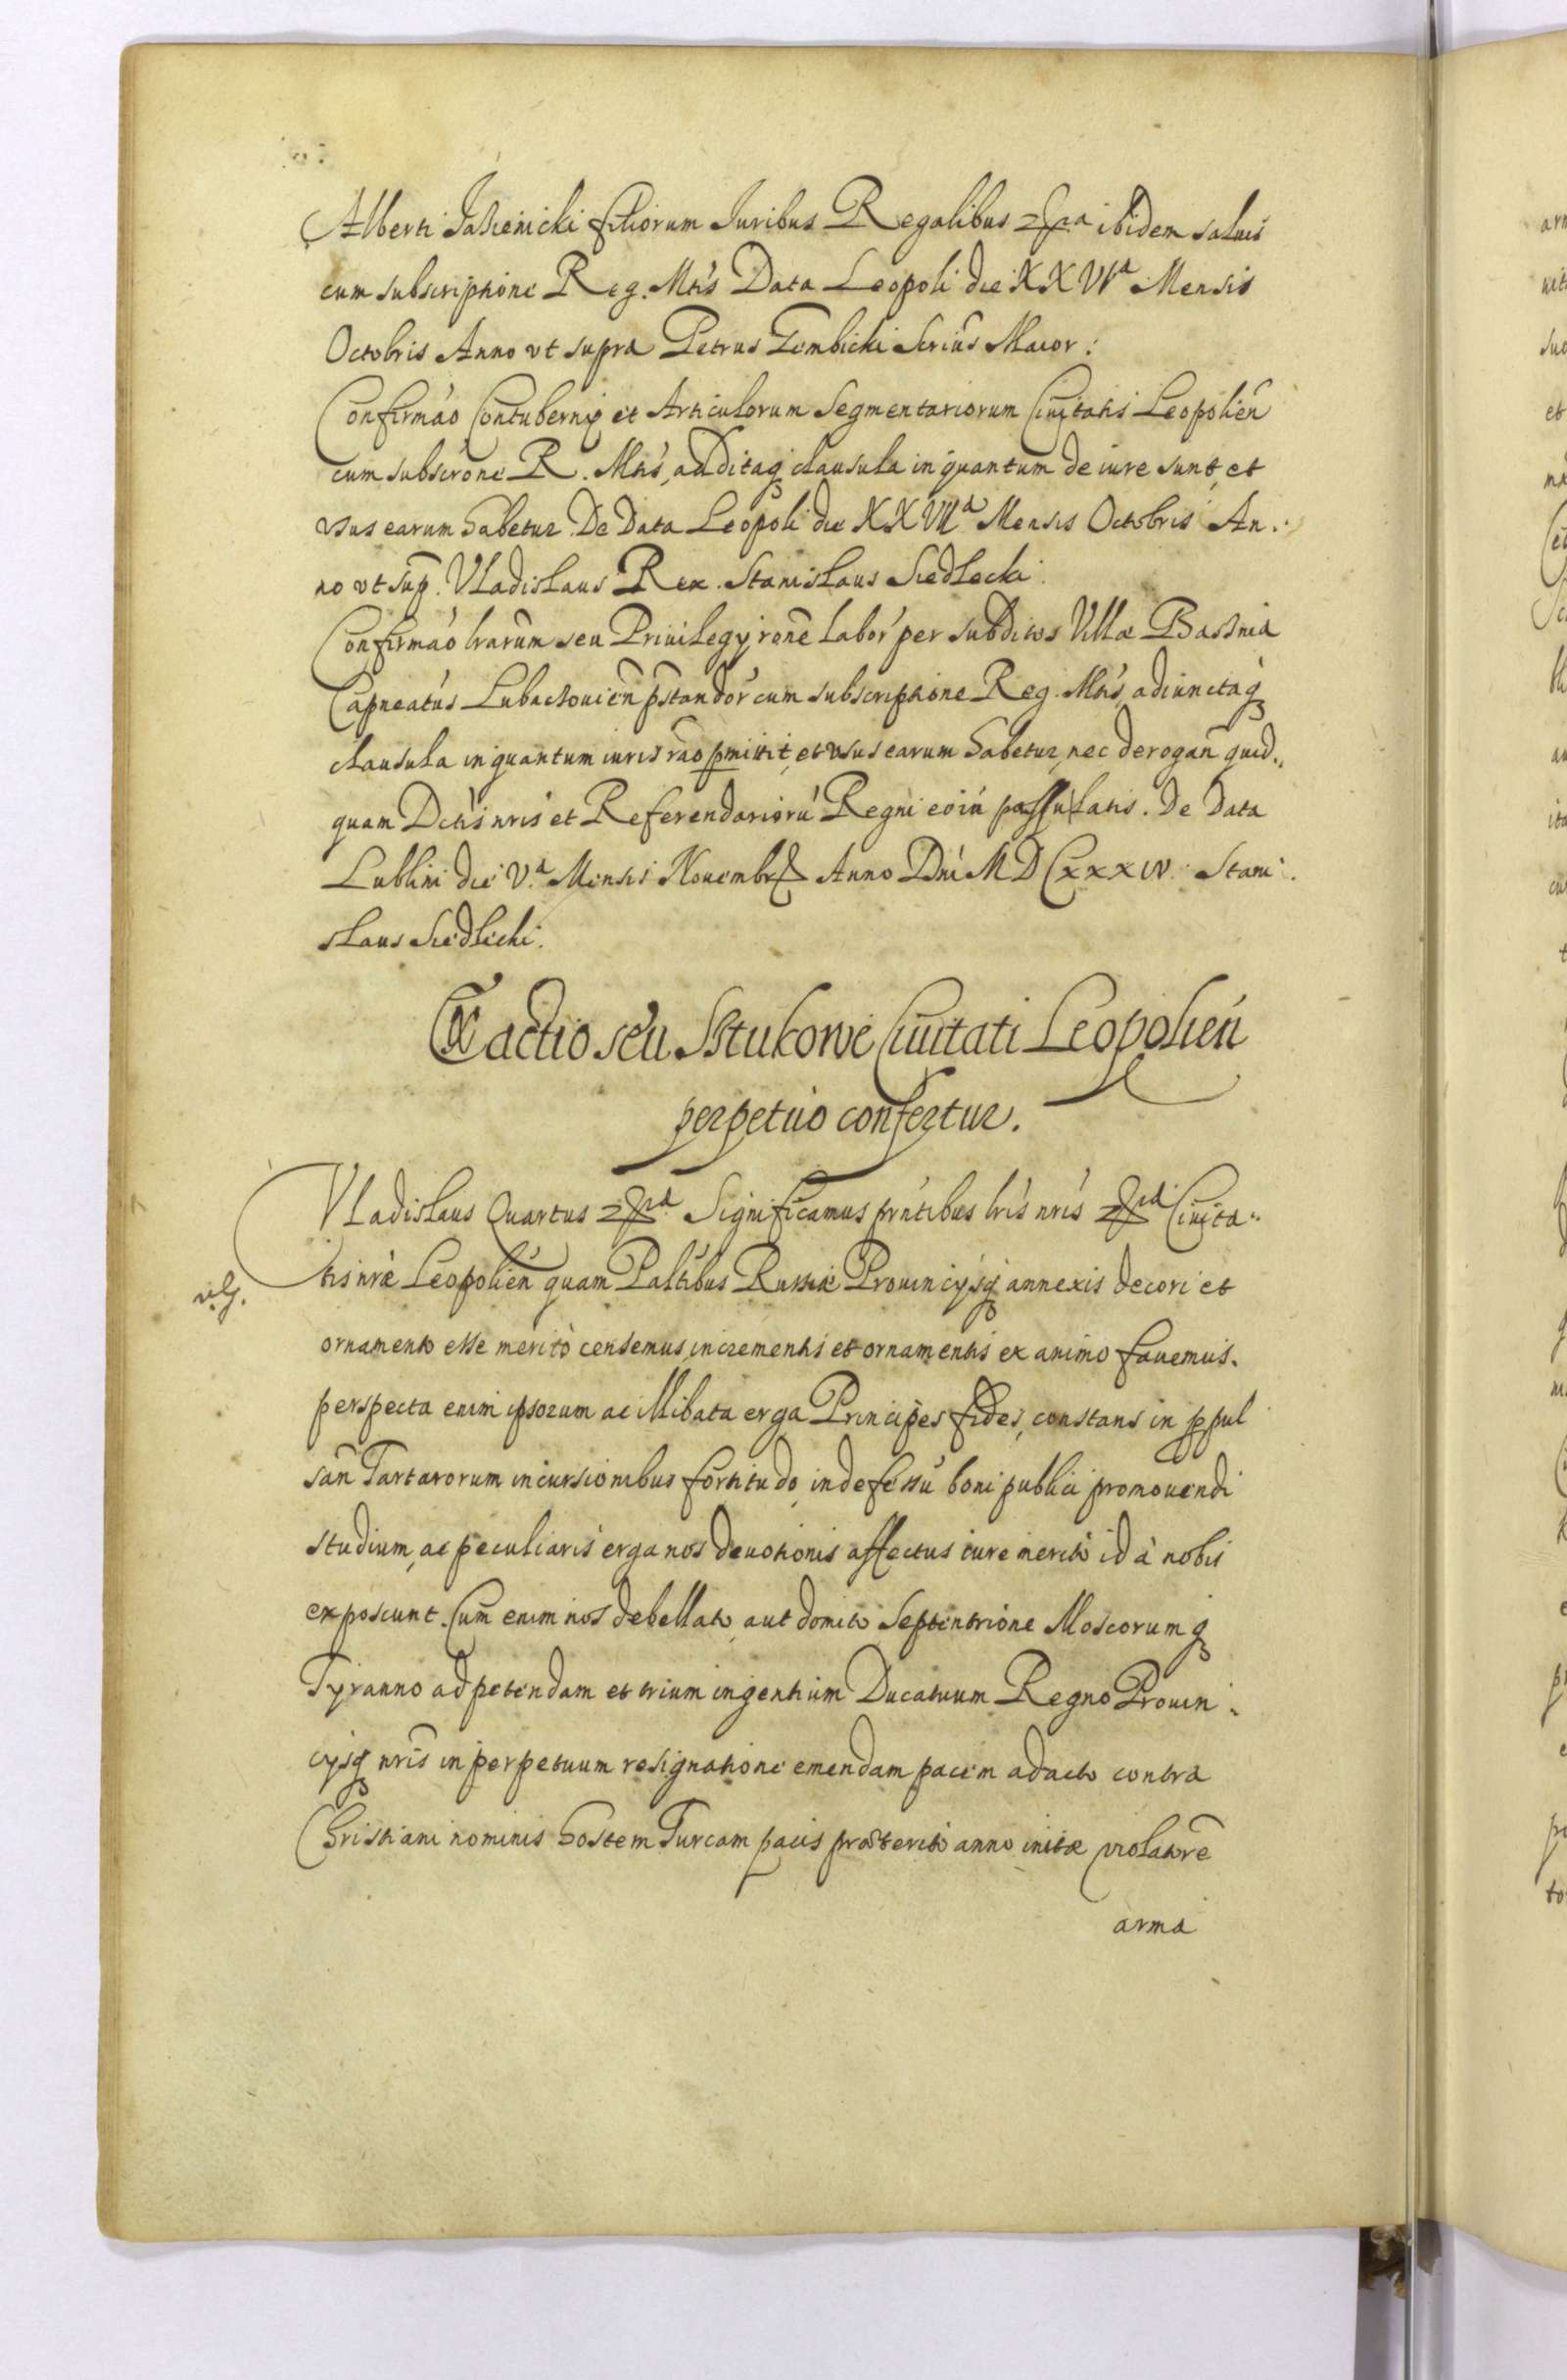 Alberti Jasienicki filiorum Iuribus Regalibus etc̃ra ibidem saluis
cum subscriptione Reg. Mtis Data Leopoli die XXVIa Mensis
Octobris Anno vt supra Petrus Gembicki Scrius Maior:
Confirmao Contubernij et Articulorum Segmentariorum Ciuitatis Leopolien̄
cum subscrone R. Mtis, additaqꝫ clausula inquantum de iure sunt, et
vsus earum habetur De Data Leopoli die XXVIIa Mensis Octobris An..
no vt sup. Vladislaus Rex. Stanislaus Siedlecki.
Confirmao lrarum seu Priuilegij rone labor per subditos Villæ Basznia
Capneatus Lubachouien̄ p̄standor cum subscriptione Reg. Mtis, adiunctaqꝫ
clausula inquantum iuris rao pmittit, et vsus earum habetur, nec derogan̄ quid..
quam Dctis nris et Referendarioru Regni eoiu postulatis. De Data
Lublini die Va Mensis Nouembr Anno Dni MDCxxxiv. Stani.
slaus Siedlecki.
Exactio seu Sztukowe Ciuitati Leopolien̄
perpetuo confertur.
VLadislaus Quartus etc̃ra Significamus pñtibus lris nris etc̃ra Ciuita..
tis nræ Leopolien̄ quam Paltibus Russiæ Prouincijsqꝫ annexis decori et
ornamento esse merito censemus, incrementis et ornamentis ex animo fauemus.
perspecta enim ipsorum ac illibata erga Principes fides, constans in ꝓpul
san̄ Tartarorum incursionibus fortitudo, indefessu boni publici promouendi
studium, ac peculiaris erga nos deuotionis affectus iure merito id à nobis
exposcunt. Cum enim nos debellato, aut domito Septentrione Moscorumqꝫ
Tyranno ad petendam et trium ingentium Ducatuum Regno Prouin.
cijsqꝫ nris in perpetuum resignatione emendam pacem adacto contra
Christiani nominis hostem Turcam pacis præterito anno initæ violatore
arma